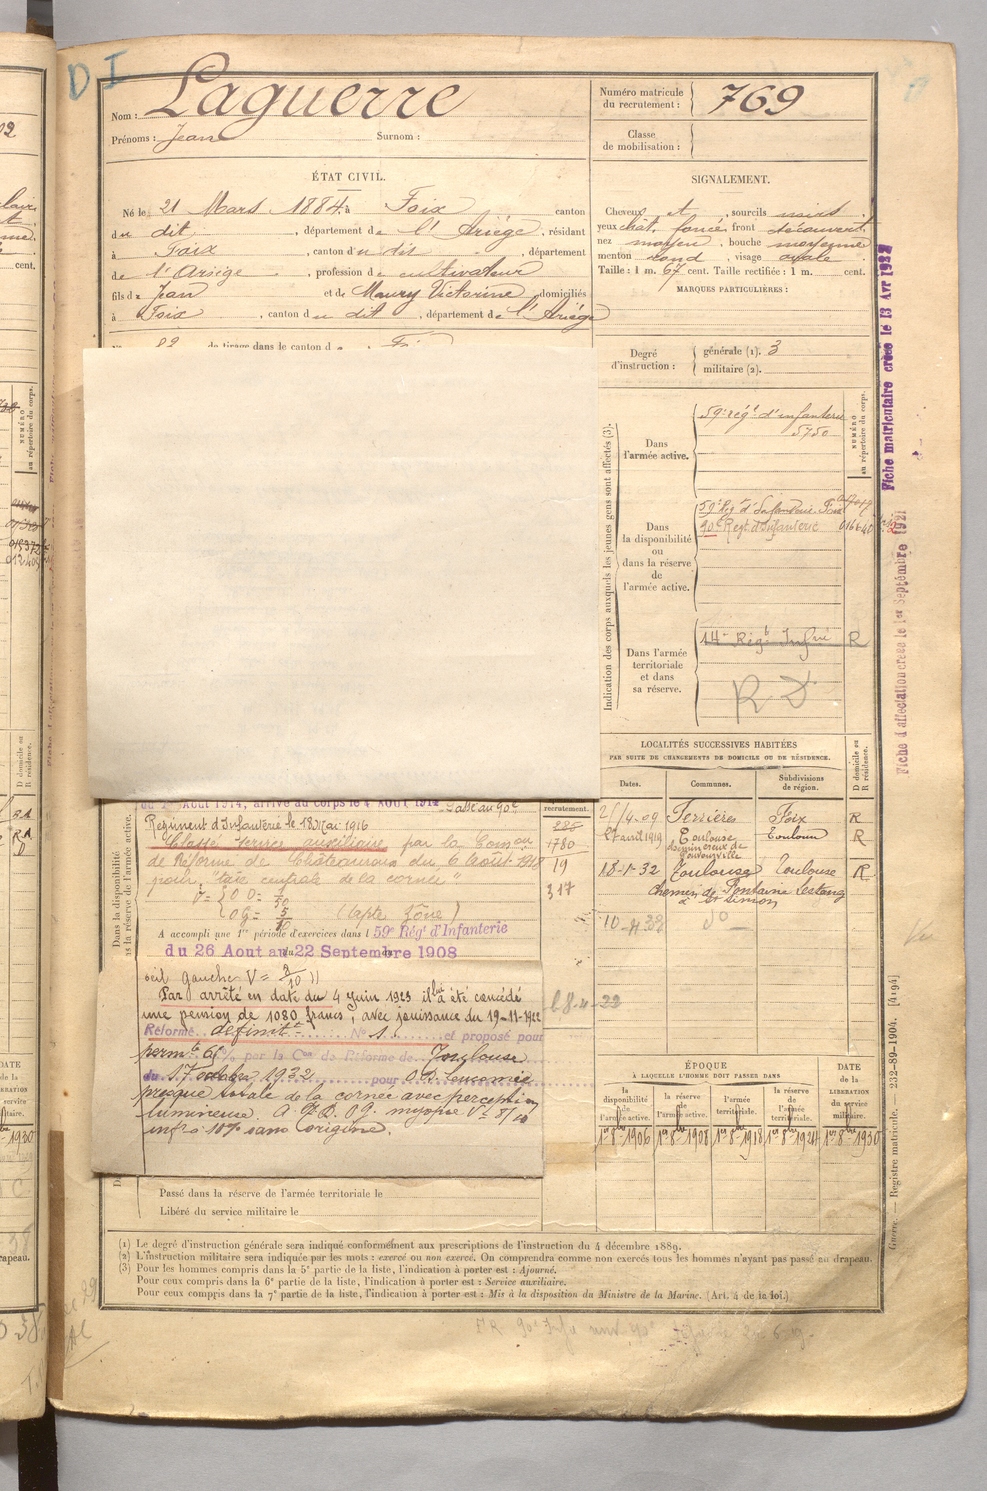 D I
Nom : Laguerre
Prénoms : Jean Surnom :
Numéro matricule
du recrutement : 769
Classe
de mobilisation :
ÉTAT CIVIL.
Né le 21 Mars 1884 à Foix canton
du dit , département de l'Ariège , résidant
à Foix , canton du dit , département
de l'Ariège , profession de cultivateur
fils de Jean et de Maury Victorine , domiciliés
à Foix , canton du dit , département de l'Ariège
de tirage dans le canton d
SIGNALEMENT.
Cheveux et , sourcils noirs
yeux chât. foncé front découvert
nez moyen , bouche moyenne
menton rond , visage ovale
Taille : 1 m. 67 cent. Taille rectifiée : 1 m. cent.
MARQUES PARTICULIÈRES :
Degré
d'instruction :
générale (1). 3
militaire (2).
Indication des corps auxquels les jeunes gens sont affectés (3).
NUMÉRO
au répertoire du corps.
Dans
l'armée active.
59e régt d'infanterie
5750
Dans
la disponibilité
ou
dans la réserve
de
l'armée active.
59e Régt d'Infanterie Foix
90e Regt d'Infanterie
Dans l'armée
territoriale
et dans
sa réserve.
14e Régt Infrie R
R D
Fiche matriculaire créée le 13 Avr 1922
Fiche d'affectation créée le 1er Septembre 1921
LOCALITÉS SUCCESSIVES HABITÉES
PAR SUITE DE CHANGEMENTS DE DOMICILE OU DE RÉSIDENCE.
Dates. Communes. Subdivisions
de région. D domicile ou
R résidence.
Ferrières Foix R
27 avril 1919 Toulouse Toulouse R
18-1-32 Toulouse Toulouse R
chemin de Fontaine Lestang
à St Simon
du Août 1914, arrivé au corps le 4 AOUT 1914 Passé au 90e
Régiment d'Infanterie le 18 Mai 1916
Classé service auxiliaire par la Comson
de Réforme de Châteauroux du 6 Août 1918
pour "taie centrale de la cornée".
(apte zône)
recrutement.
1780
19
317
Dans la disponibilité
la réserve de l'armée active.
A accompli une 1re période d'exercices dans l 59e Rég' d'Infanterie
du 26 Aout au 22 Septembre 1908
oeil gauche V =
Par arrêté en date du 4 Juin 1923 il lui a été concédé
une pension de 1080 francs, avec jouissance du 19-11-1922
Réformé définitt N° 1 et proposé pour
permte % par la Con de Réforme de Toulouse
du 17 octobre 1932 pour OD. Leucomie
presque totale de la cornée avec perception
lumineuse. OG. myopie V = 8/10
infra 10% sans origine.
ÉPOQUE
À LAQUELLE L'HOMME DOIT PASSER DANS
la
disponibilité
de
l'armée active.
la réserve
de
l'armée active.
l'armée
territoriale.
la réserve
de
l'armée
territoriale.
DATE
de la
LIBÉRATION
du service
militaire.
1er 8bre 1906 1er 8bre 1908 1er 8bre 1918 1er 8bre 1924 1er 8bre 1930
Passé dans la réserve de l'armée territoriale le
Libéré du service militaire le
(1) Le degré d'instruction générale sera indiqué conformément aux prescriptions de l'instruction du 4 décembre 1889.
(2) L'instruction militaire sera indiquée par les mots : exercé ou non exercé. On comprendra comme non exercés tous les hommes n'ayant pas passé au drapeau.
(3) Pour les hommes compris dans la 5e partie de la liste, l'indication à porter est : Ajourné.
Pour ceux compris dans la 6e partie de la liste, l'indication à porter est : Service auxiliaire.
Pour ceux compris dans la 7e partie de la liste, l'indication à porter est : Mis à la disposition du Ministre de la Marine. (Art. 4 de la loi.)
Guerre. — Registre matricule. — 232-89-1904. [4194]